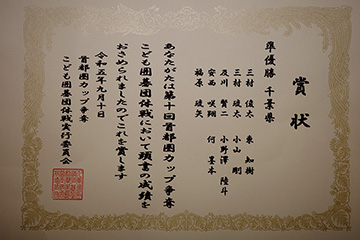 賞状
準優勝 千葉県
三村 俊太 東 知樹
三村 竣太 小山 剛
及川 賢二 小野澤 陸斗
安西 咲翔 何 墨本
福原 琥矢
あなたがたは第十回首都圏カップ争奪
こども囲碁団体戦において頭書の成績を
おさめられましたのでこれを賞します
令和五年九月十日
首都圏カップ争奪
こども囲碁団体戦実行委員会